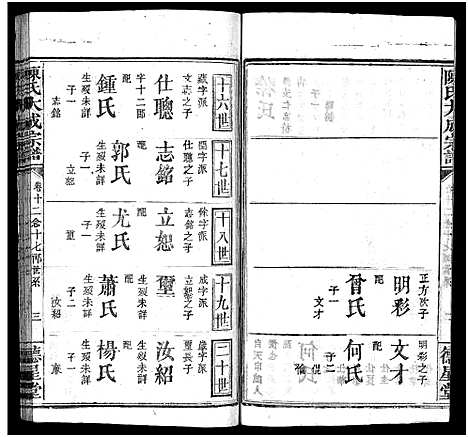 陳氏大成宗譜
德星堂
正方次子
明彩
配
曾氏
子一
文才
明彩之子
文才
配
何氏
子二
十六世
文秀之子
仕聰
字十二郎
配
鍾氏
生歿未詳
子一
志銘
十七世
仕聰之子
志銘
配
郭氏
生歿未詳
子一
立恕
十八世
志銘之子
立恕
配
尤氏
生歿未詳
子一
十九世
立恕之子
璽
配
蕭氏
生歿未詳
子一
汝紹
二十世
璽長子
汝紹
配
楊氏
生歿未詳
子一
陳氏大成宗譜
卷十二念十七郎世系
三
德星堂